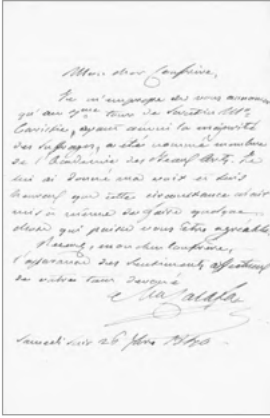 Mon cher Confrère,
Je m'empresse de vous annoncer
qu'au tour de scrutin Mr
ayant réuni la majorité
des suffrages, a été nommé membre
de l'Académie des Beaux Arts. Je
lui ai donné ma voix et suis
heureux que cette circonstance m'ait
mis à même de faire quelque
chose qui puisse vous être agréable.
Recevez, mon cher Confrère,
l'assurance des sentiments affectueux
de votre tout dévoué
Samedi soir 26